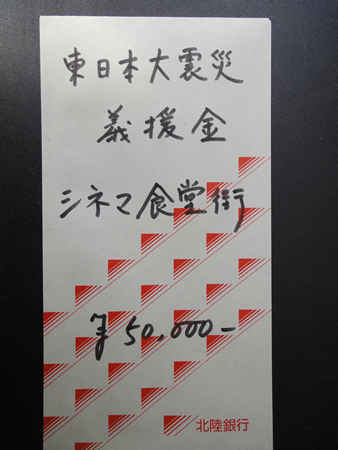 東日本大震災
義援金
シネマ食堂街
¥50,000-
北陸銀行